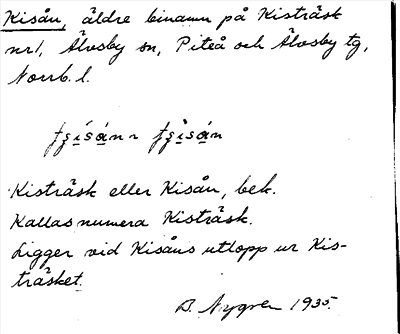 Kisån, äldre binamn på Kisträsk
nr1, Älvsby sn, Piteå och Älvsby tg,
Norrb. l.
Kisträsk eller Kisån, bek.
Kallas numera Kisträsk.
Ligger vid Kisåns utlopp ur Kis-
träsket.
D. Nygren 1935.